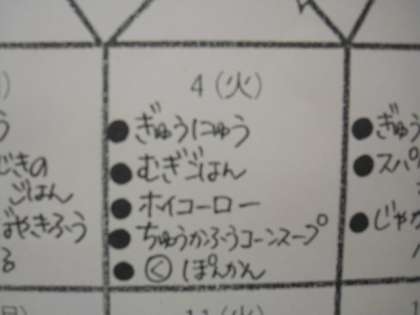 4 (火)
● ぎゅうにゅう
● むぎごはん
● ホイコーロー
● ちゅうかふうコーンスープ
● Ⓒ ぽんかん
ごはん
● ぎゅう
● スパ
● じゃ
11 (火)